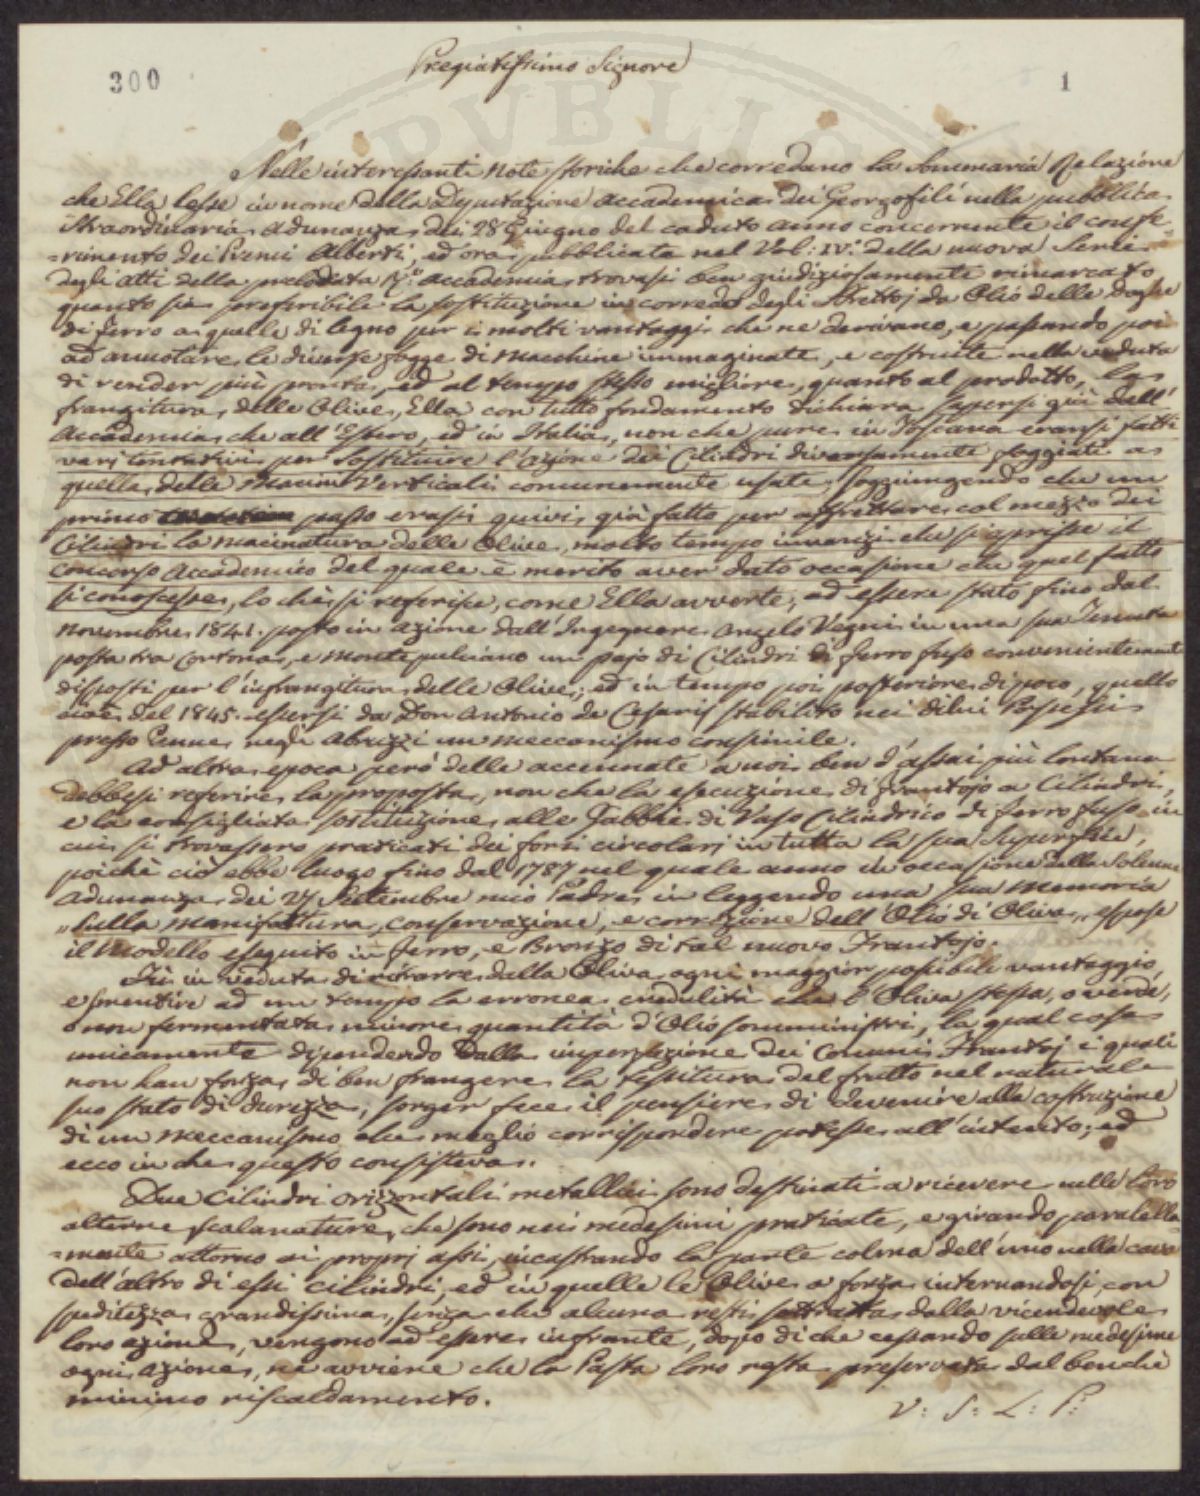 300
Pregiatissimo Signore
1
Nelle interessanti Note storiche che corredano la Sommaria Relazione
che Ella lesse in nome della Deputazione Accademica dei Georgofili nella pubblica
Straordinaria Adunanza dei 28 Giugno del caduto anno concernente il confe=
=rimento dei Premi Alberti, ed ora pubblicata nel Vol: IV: della nuova Serie
degli Atti della prelodata Accademia, trovasi ben giudiziosamente rimarcato
quanto sia preferibile la sostituzione in corredo degli Strettoj da Olio delle doghe
di ferro a quelle di legno per i molti vantaggi che ne derivano, e passando poi
ad annotare le diverse fogge di Macchine immaginate, e costruite nella veduta
di render più pronta, ed al tempo stesso migliore, quanto al prodotto, la
frangitura delle Olive, Ella con tutto fondamento dichiara sapersi già dall'
Accademia che all'Estero, ed in Italia, non che pure in Toscana eransi fatti
varj tentativi per sostituire l'azione dei Cilindri diversamente foggiati a
quella delle Macini Verticali comunemente usate, soggiungendo che un
primo passo erasi quivi già fatto per affrettare col mezzo dei
Cilindri la macinatura delle Olive, molto tempo innanzi che si aprisse il
Concorso Accademico del quale è merito aver dato occasione che quel fatto
si conoscesse, lo che si referisce, come Ella avverte, ad essere stato fino dal
Novembre 1841. posto in azione dall'Ingegnere Angelo Vegni in una sua Tenuta
posta tra Cortona, e Montepulciano un pajo di Cilindri di ferro fuso convenientement
disposti per l'infrangitura delle Olive; ed in tempo poi posteriore di poco, quello
cioè del 1845. essersi da Don Antonio de Cesaris stabilito nei di lui Possessi
presso Penne negli Abruzzi un meccanismo consimile.
Ad altra epoca però delle accennate a noi ben d'assai più lontana
debbesi referire la proposta, non che la esecuzione di Frantojo a Cilindri,
e la consigliata sostituzione alle Gabbie di Vaso Cilindrico di ferro fuso in
cui si trovassero praticati dei fori circolari in tutta la sua Superficie,
poichè ciò ebbe luogo fino dal 1787 nel quale anno in occasione della Solenne
Adunanza dei 27 Settembre mio Padre in leggendo una sua Memoria
„ sulla manifattura, conservazione, e correzione dell'Olio di Oliva „ espose
il Modello eseguito in ferro, e Bronzo di tal nuovo Frantojo.
Fù in veduta di ritrarre dalla Oliva ogni maggior possibile vantaggio,
e smentire ad un tempo la erronea credulità che l'Oliva stessa, o verde,
o non fermentata minore quantità d'Olio somministri, la qual cosa
unicamente dipendendo dalla imperfezione dei Comuni Frantoj i quali
non han forza di ben frangere la testitura del frutto nel naturale
suo stato di durezza, sorger fece il pensiere di devenire alla costruzione
di un Meccanismo che meglio corrispondere potesse all'intento; ed
ecco in che questo consisteva.
Due Cilindri orizzontali metallici sono destinati a ricevere nelle loro
alterne scalanature, che sono nei medesimi praticate, e girando paralella
=mente attorno ai proprj assi, incastrando la parte colma dell'uno nella cava
dell'altro di essi cilindri, ed in quelle le Olive a forza internandosi, con
speditezza grandissima, senza che alcuna resti sottratta dalla vicendevole
loro azione, vengono ad essere infrante, dopo di che cessando sulle medesime
ogni azione, ne avviene che la Pasta loro resta preservata dal benchè
minimo riscaldamento.
V: S: L: P: